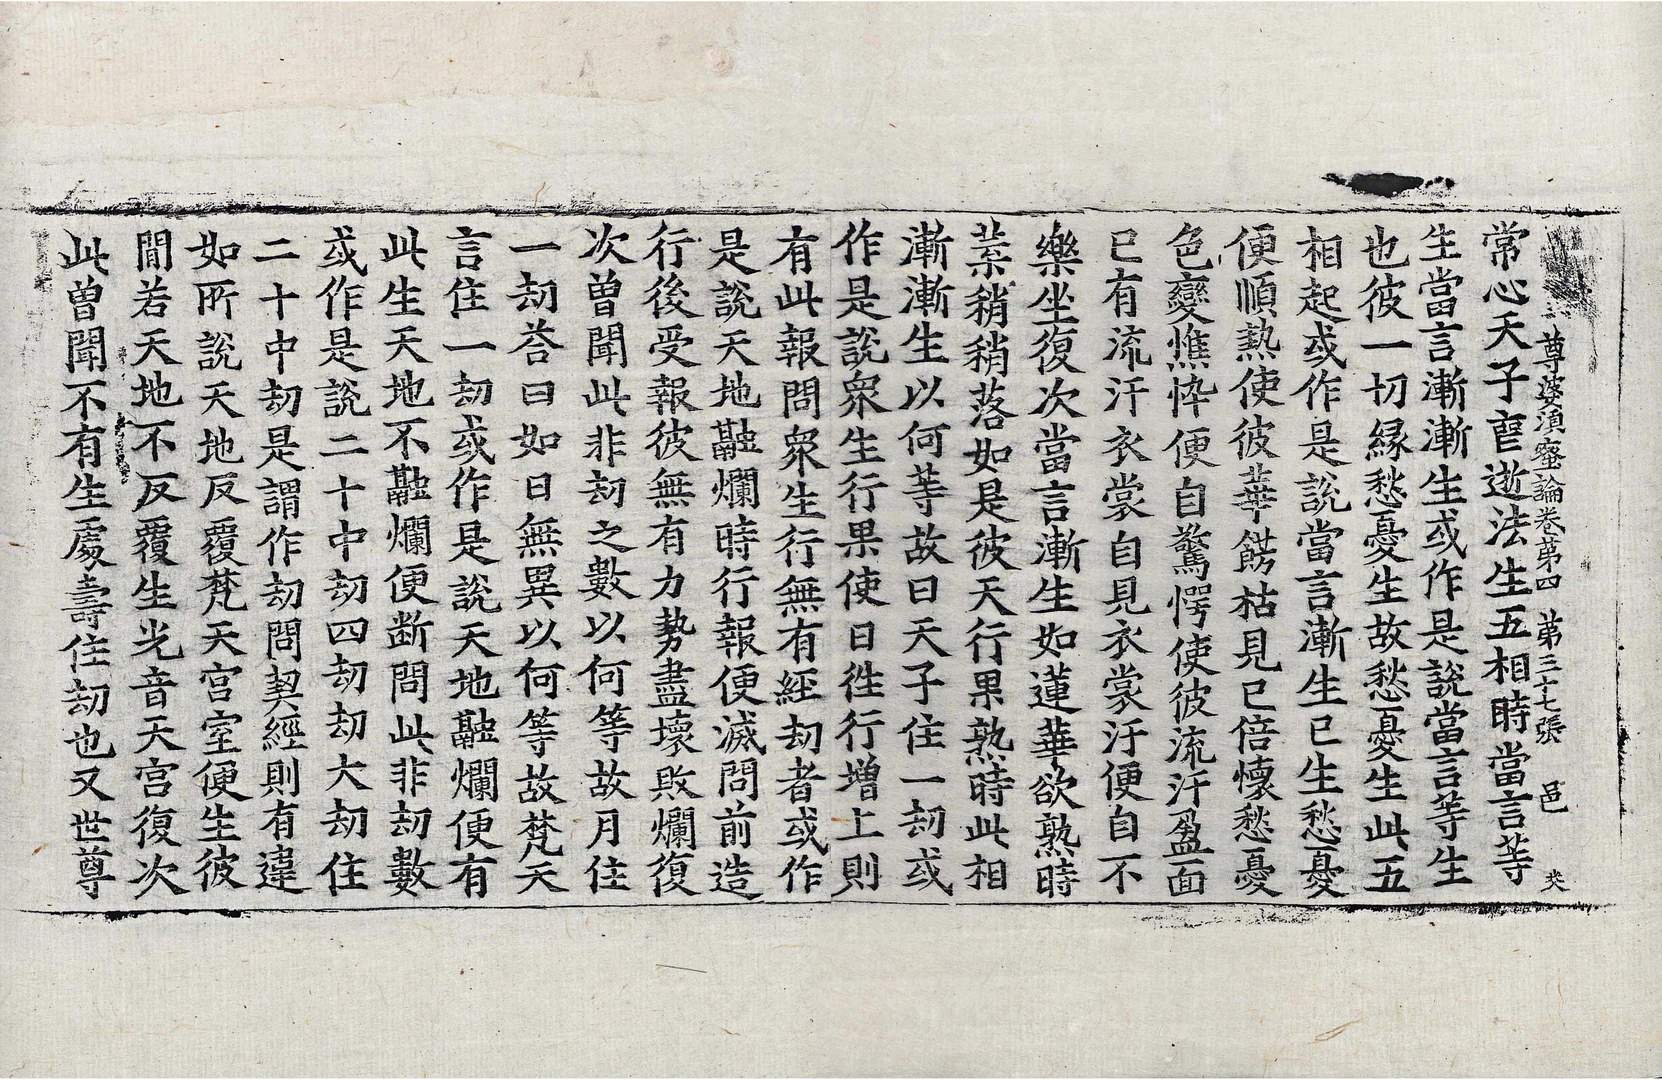 尊婆湏蜜論卷第四 第三十七張 邑
常心天子㐮逝法生五相時當言等
生當言漸漸生或作是說當言等生
也彼一切緣愁憂生故愁憂生此五
相起或作是說當言漸生已生愁憂
便順熱使彼華餝枯見已倍懷愁憂
色變憔悴便自驚愕使彼流汗盈面
已有流汗衣裳自見衣裳汙便自不
樂坐復次當言漸生如蓮華欲熟時
葉稍稍落如是彼天行果熟時此相
漸漸生以何等故曰天子住一劫或
作是說衆生行果使日徃行增上則
有此報問衆生行無有經劫者或作
是說天地融爛時行報便滅問前造
行後受報彼無有力勢盡壞敗爛復
次曾聞此非劫之數以何等故月住
一劫荅曰如日無異以何等故梵天
言住一劫或作是說天地融爛便有
此生天地不融爛便断問此非劫數
或作是說二十中劫四劫劫大劫住
二十中劫是謂作劫問契經則有違
如所說天地反覆梵天宮室便生彼
間若天地不反覆生光音天宮復次
此曾聞不有生處壽住劫也又世尊